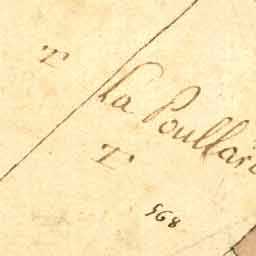 T
La Poullar
T
568